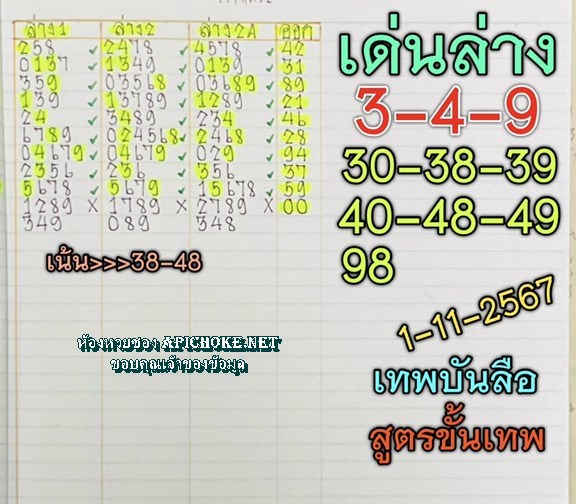 ล่าง1 ล่าง2 ล่าง2A ออก
258 ✓ 2478 ✓ 4578 ✓ 42
0137 ✓ 1349 ✓ 0139 ✓ 31
359 ✓ 03568 ✓ 03689 ✓ 89
139 ✓ 13789 ✓ 1289 ✓ 21
24 ✓ 3489 ✓ 234 ✓ 46
6789 ✓ 024568 ✓ 2468 ✓ 28
04679 ✓ 04679 ✓ 029 ✓ 94
2356 ✓ 236 ✓ 356 ✓ 37
5678 ✓ 5679 ✓ 15678 ✓ 59
1289 X 1789 X 2789 X 00
349 089 348
เน้น>>>38-48
ห้องหวยซอง APICHOKE.NET
ขอบคุณเจ้าของข้อมูล
เด่นล่าง
3-4-9
30-38-39
40-48-49
98
1-11-2567
เทพบันลือ
สูตรขั้นเทพ